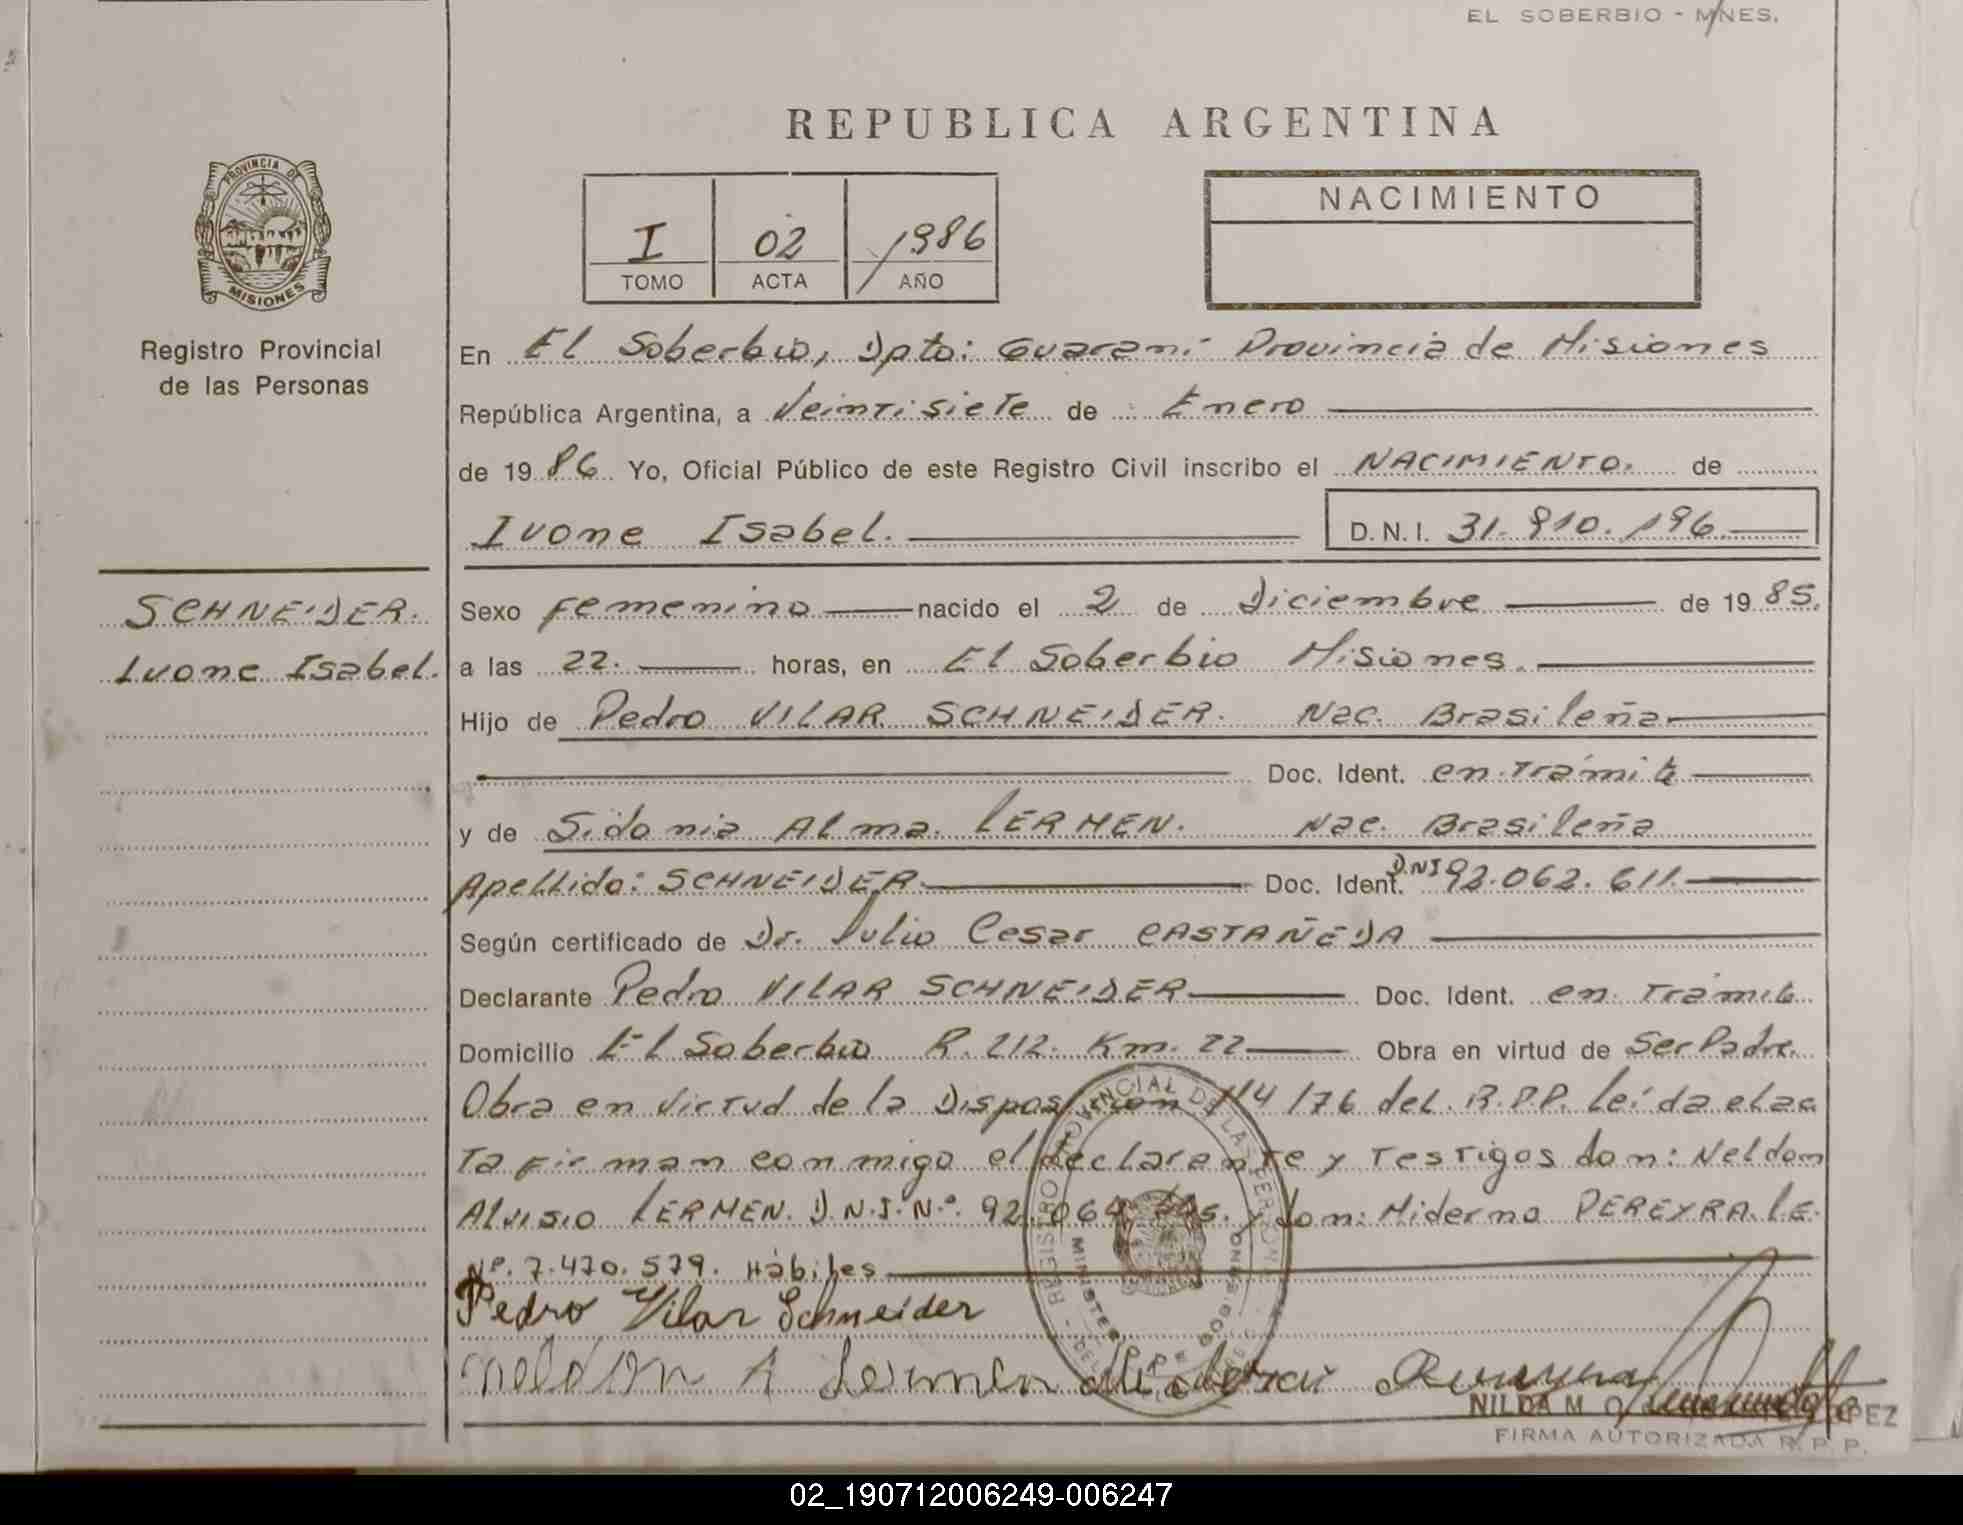 EL SOBERBIO - MNES.
REPUBLICA ARGENTINA
PROVINCIA DE
MISIONES
Registro Provincial
de las Personas
I 02 1986
TOMO ACTA AÑO
NACIMIENTO
En El Soberbio, Dpto: Guaraní Provincia de Misiones
República Argentina, a Veintisiete de Enero
de 1986 Yo, Oficial Público de este Registro Civil inscribo el NACIMIENTO. de
Ivone Isabel. D.N.I. 31.910.196
SCHNEIDER.
Ivone Isabel.
Sexo femenino nacido el 2 de Diciembre de 1985.
a las 22. horas, en El Soberbio Misiones.
Hijo de Pedro VILAR SCHNEIDER. Nac. Brasileña
Doc. Ident. en trámite
y de Sidonia Alma LERMEN. Nac. Brasileña
Apellido: SCHNEIDER Doc. Ident. DNI 92.062.611.
Según certificado de Dr. Julio Cesar CASTAÑEDA
Declarante Pedro VILAR SCHNEIDER Doc. Ident. en tramite
Domicilio El Soberbio R. 212. Km. 22 Obra en virtud de Ser Padre.
Obra en virtud de la Disposicion 114/76 del R.P.P. Leída el ac
ta firman conmigo el declarante y testigos don: Neldon
Aluisio LERMEN. D.N.I. Nº. 92.064. y don: Miderno PEREYRA. L.E.
Nº. 7.470.579. Hábiles
Pedro Vilar Schneider
Neldon A Lermen
NILDA M
FIRMA AUTORIZADA R. P. P.
02_190712006249-006247